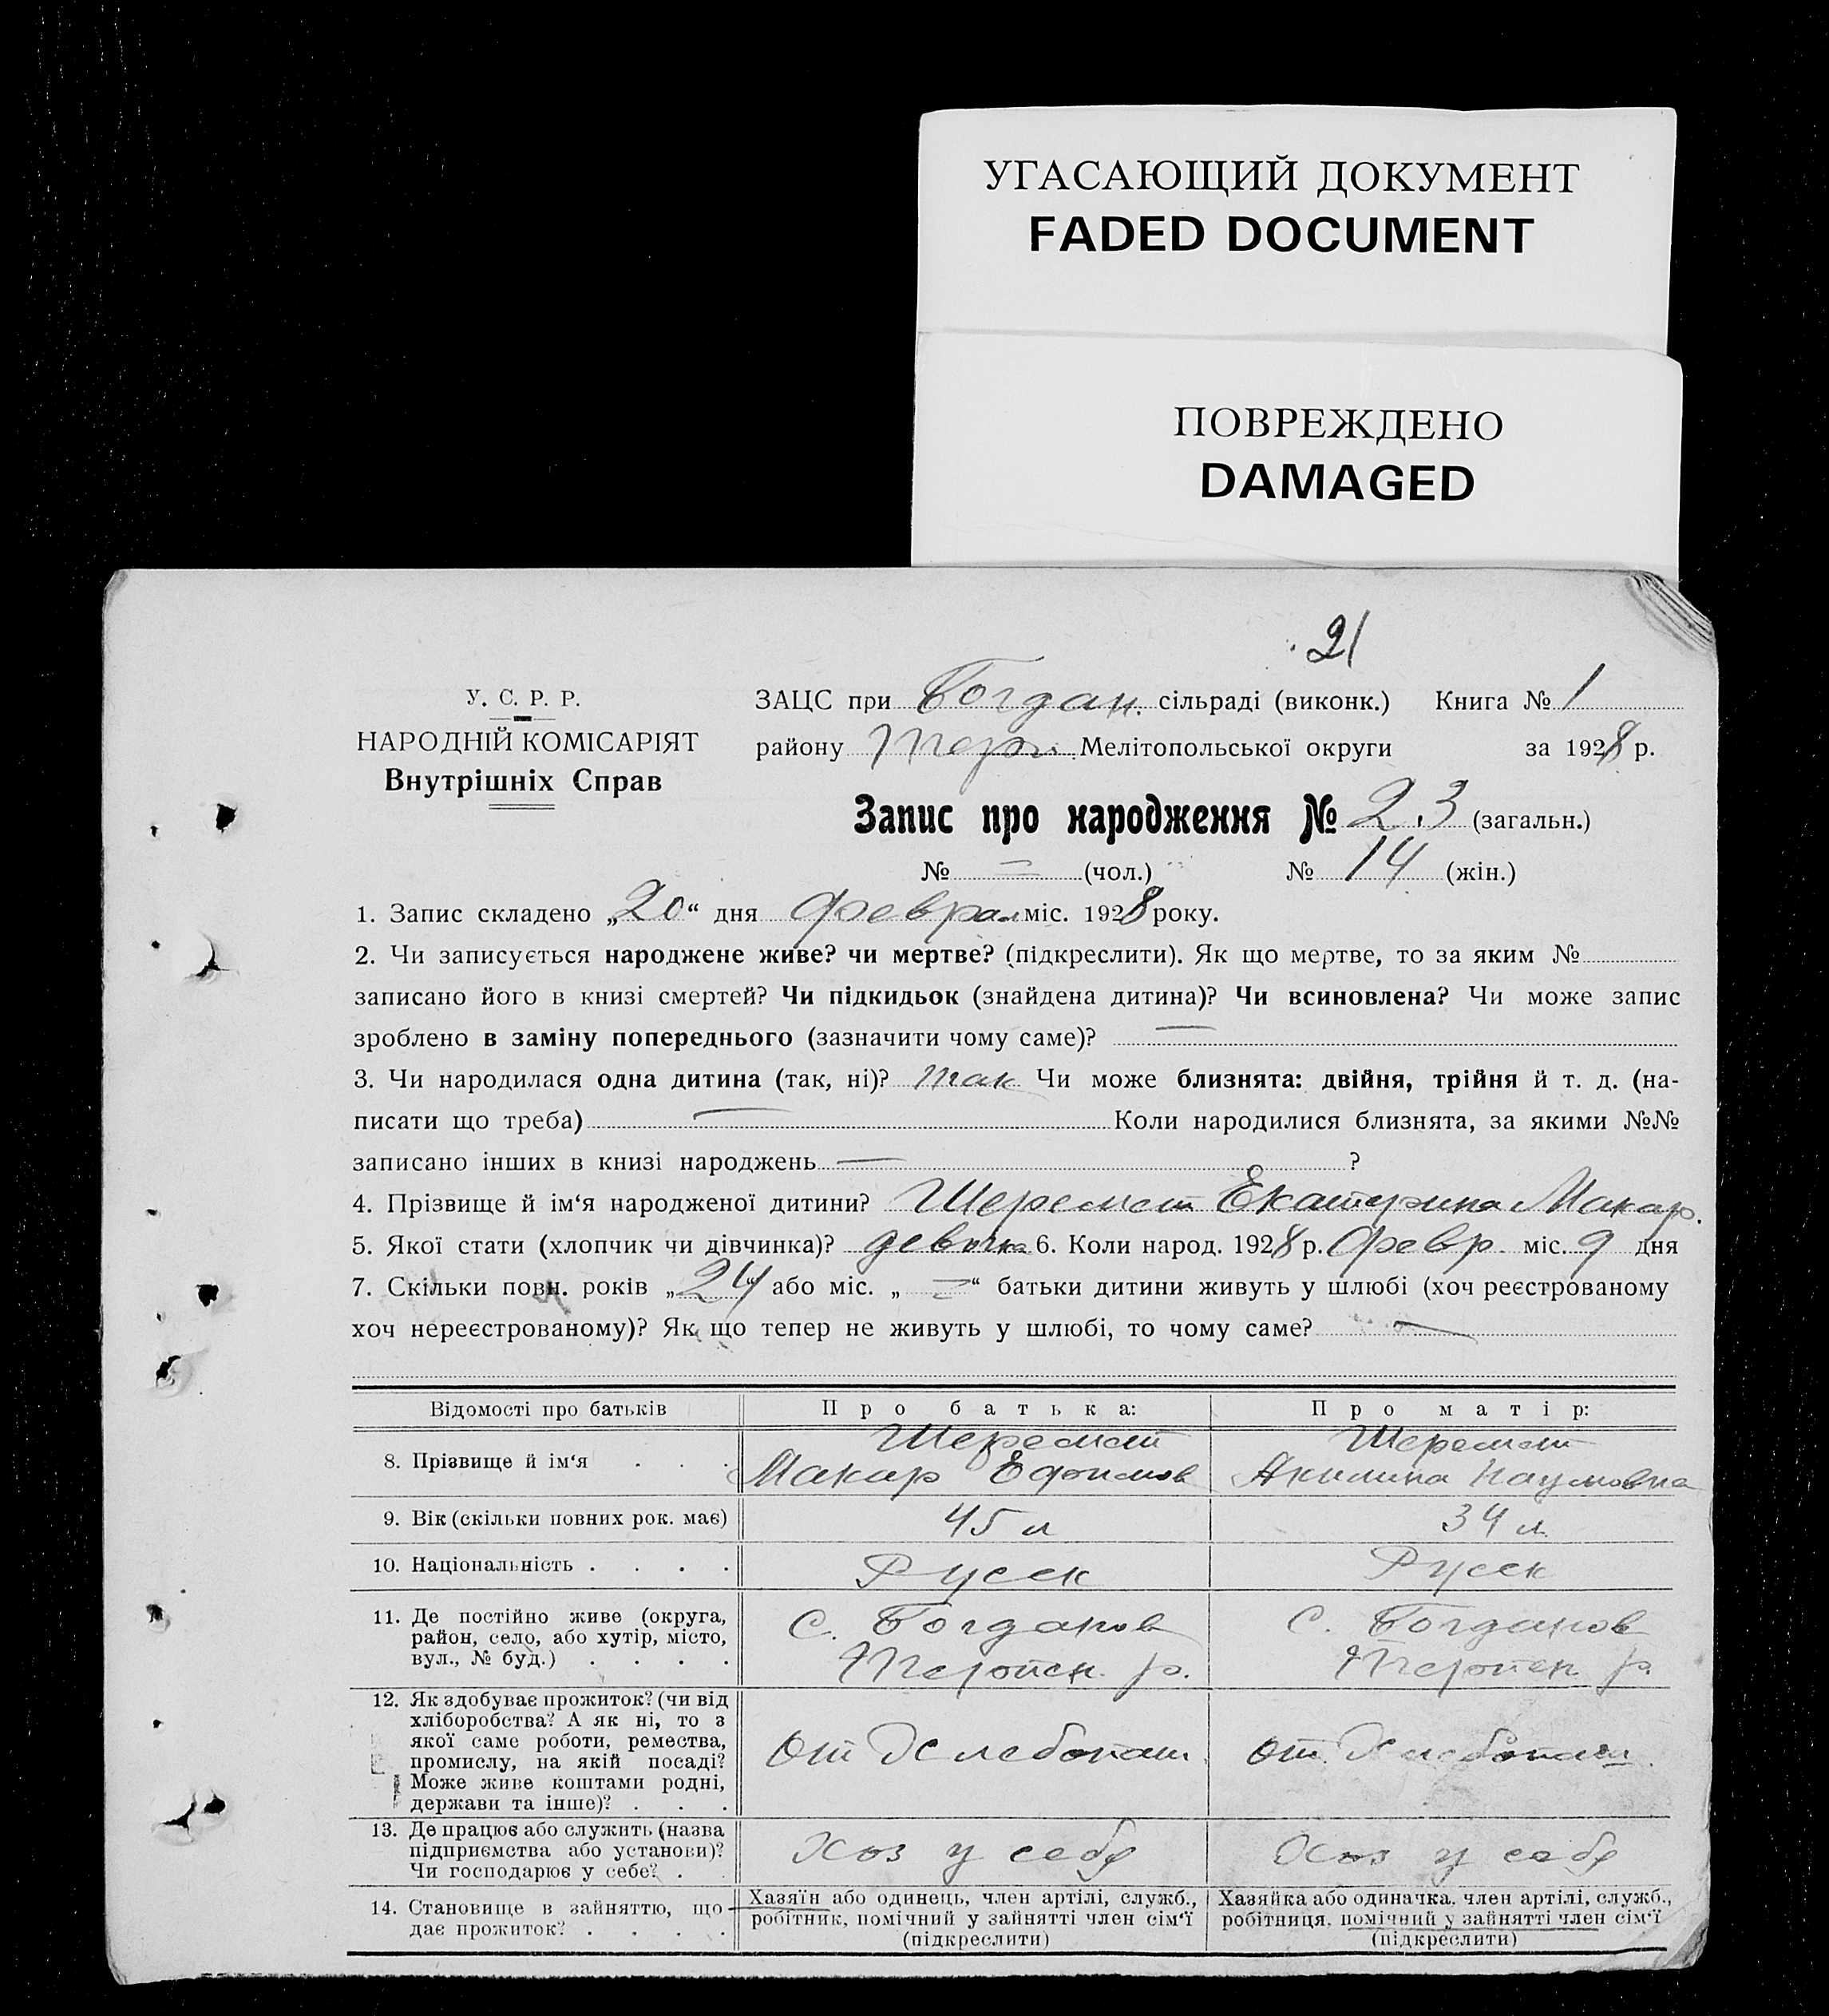 УГАСАЮЩИЙ ДОКУМЕНТ
FADED DOCUMENT
ПОВРЕЖДЕНО
DAMAGED
21
У. С. Р. Р.
НАРОДНІЙ КОМІСАРІЯТ
Внутрішніх Справ
ЗАЦС при Богдан. сільраді (виконк.) Книга № 1
району Терп. Мелітопольської округи за 1928 р.
Запис про народження № 23 (загальн.)
№ = (чол.) № 14 (жін.)
1. Запис складено „20“ дня феврал міс. 1928 року.
2. Чи записується народжене живе? чи мертве? (підкреслити). Як що мертве, то за яким №
записано його в книзі смертей? Чи підкидьок (знайдена дитина)? Чи всиновлена? Чи може запис
зроблено в заміну попереднього (зазначити чому саме)? —
3. Чи народилася одна дитина (так, ні)? так Чи може близнята: двійня, трійня й т. д. (на-
писати що треба) — Коли народилися близнята, за якими №№
записано інших в книзі народжень — ?
4. Прізвище й ім‘я народженої дитини? Шеремет Екатерина Макар.
5. Якої стати (хлопчик чи дівчинка)? девочка 6. Коли народ. 1928 р. Февр. міс. 9 дня
7. Скільки повн. років „24“ або міс. „=“ батьки дитини живуть у шлюбі (хоч реєстрованому
хоч нереєстрованому)? Як що тепер не живуть у шлюбі, то чому саме? —
Відомості про батьків Про батька: Про матір:
8. Прізвище й ім‘я . . . Шеремет Макар Ефимов Шеремет Акилина Наумовна
9. Вік (скільки повних рок. має) 45 л 34 л.
10. Національність . . . . Русск Русск
11. Де постійно живе (округа,
район, село, або хутір, місто,
вул., № буд.) . . . .
С. Богданов
Терпен. р.
С. Богданов
Терпен р.
12. Як здобуває прожиток? (чи від
хліборобства? А як ні, то з
якої саме роботи, ремества,
промислу, на якій посаді?
Може живе коштами родні,
держави та інше)? . . .
От Хлебопаш. от Хлебопаш.
13. Де працює або служить (назва
підприємства або установи)?
Чи господарює у себе? .
Хоз у себе Хоз у себе
14. Становище в зайняттю, що
дає прожиток? . . . .
Хазяїн або одинець, член артілі, служб.,
робітник, помічний у зайнятті член сім‘ї
(підкреслити)
Хазяйка або одиначка, член артілі, служб.,
робітниця, помічний у зайнятті член сім‘ї
(підкреслити)